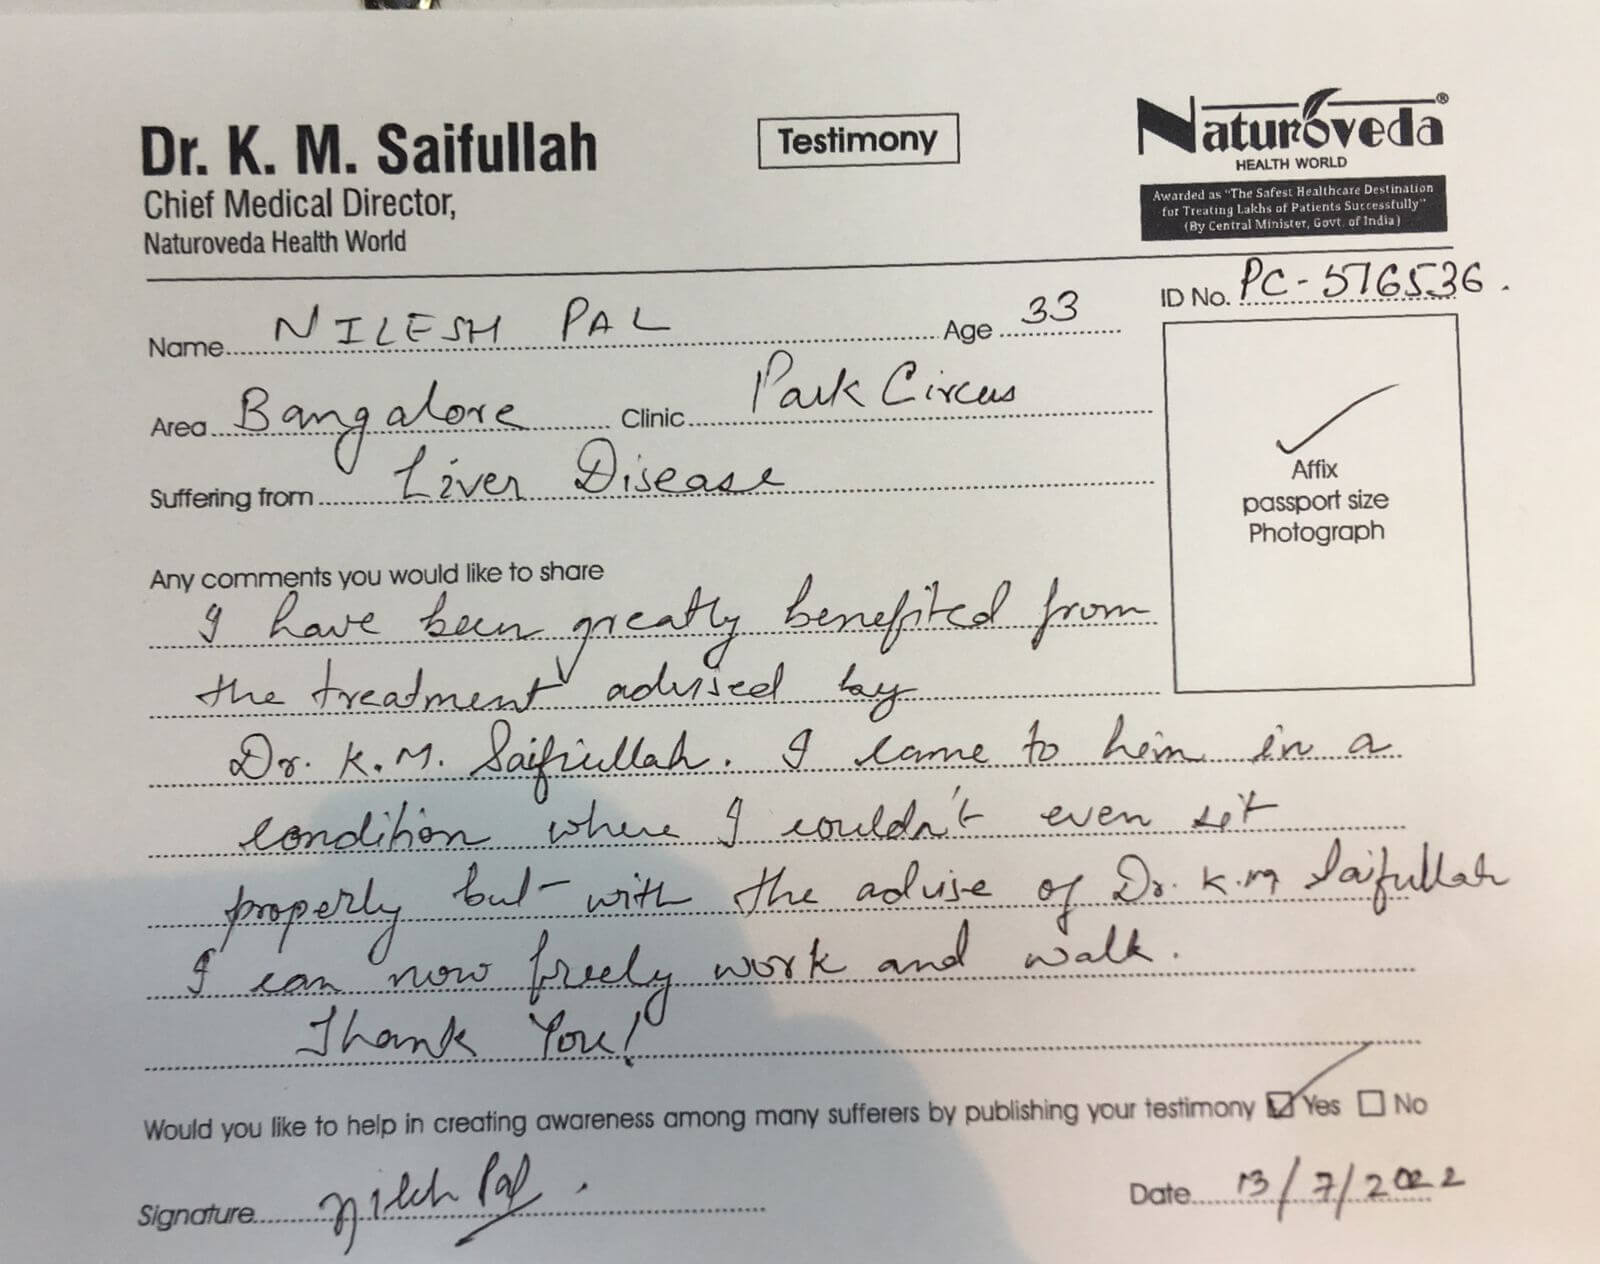 Dr. K. M. Saifullah
Chief Medical Director,
Naturoveda Health World
Testimony
Naturoveda®
HEALTH WORLD
Awarded as "The Safest Healthcare Destination
for Treating Lakhs of Patients Successfully"
(By Central Minister, Govt. of India)
ID No. PC-576536.
Name NILESH PAL Age 33
Area Bangalore Clinic Park Circus
Suffering from Liver Disease
Affix
passport size
Photograph
Any comments you would like to share
I have been greatly benefited from
the treatment advised by
Dr. K.M. Saifiullah. I came to him in a
condition where I couldn't even sit
properly but with the advise of Dr. K.M Saifullah
I can now freely work and walk.
Thank You!
Would you like to help in creating awareness among many sufferers by publishing your testimony Yes No
Signature Nilesh Pal. Date 13/7/2022